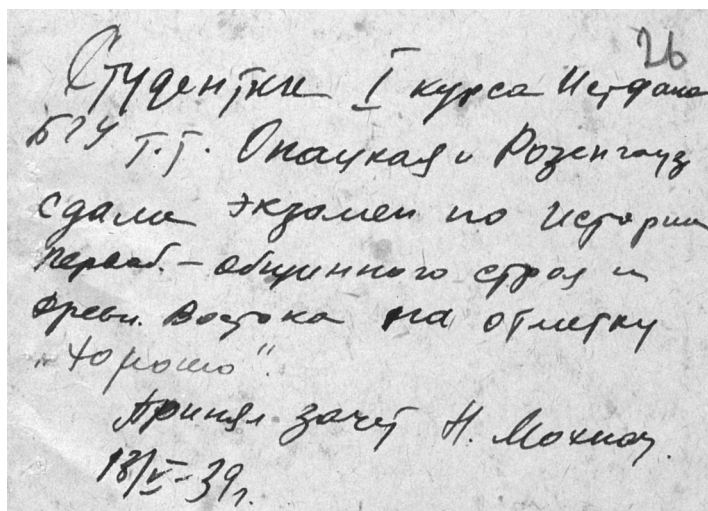 26
Студентки I курса Истфака
БГУ т.т. Опацкая и Розенгауз
сдали экзамен по истории
Первоб.-общинного строя и
древн. Востока на отметку
„хорошо“.
Принял зачет Н. Мохнач.
13/V-39г.